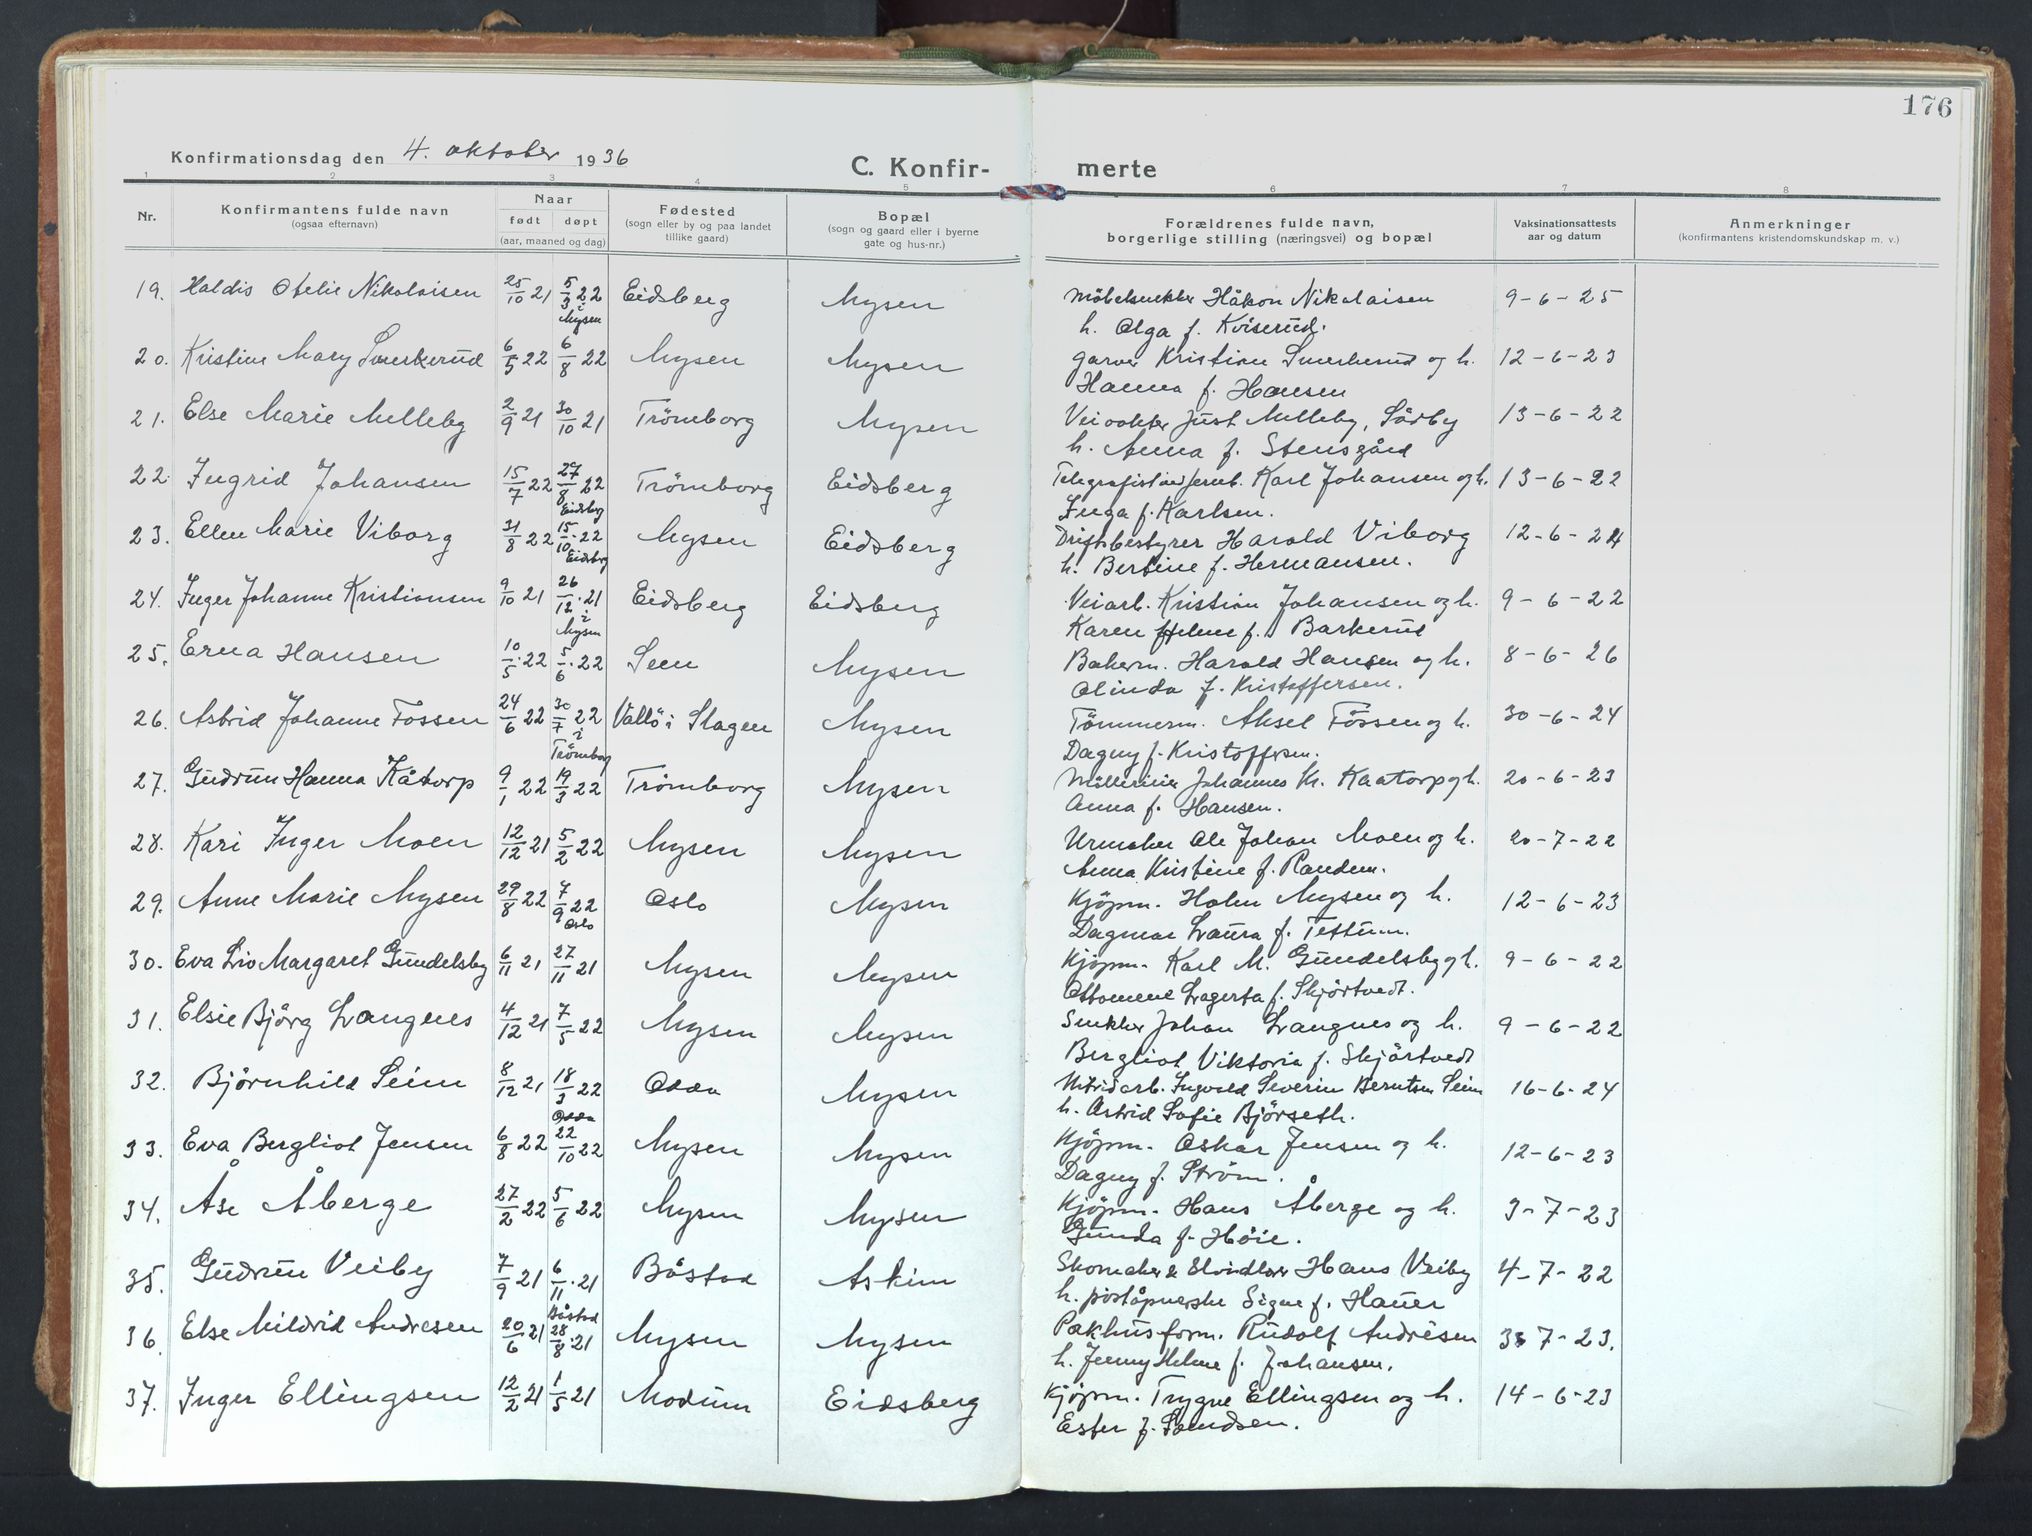 176
Konfirmationsdag den 4. oktober 1936
C. Konfir- merte
1 2 3 4 5 6 7 8
Nr.
Konfirmantens fulde navn
(ogsaa efternavn)
Naar
født døpt
(aar, maaned og dag)
Fødested
(sogn eller by og paa landet
tillike gaard)
Bopæl
(sogn og gaard eller i byerne
gate og hus-nr.)
Forældrenes fulde navn,
borgerlige stilling (næringsvei) og bopæl
Vaksinationsattests
aar og datum
Anmerkninger
(konfirmantens kristendomskundskap m. v.)
19. Haldis Otelie Nikolaisen 25/10 21 5/3 22 i Mysen Eidsberg Mysen Möbelsnekker Håkon Nikolaisen 9-6-25
h. Olga f. Kviserud.
20. Kristine Mary Smerkerud 6/5 22 6/8 22 Mysen Mysen garver Kristian Smerkerud og h. 12-6-23
Hanna f. Hansen
21. Else Marie Melleby 2/9 21 30/10 21 Trömborg Mysen Veivokter Just Melleby, Sårby 13-6-22
h. Anna f. Stensgård
22. Ingrid Johansen 15/7 22 27/8 22 Eidsberg Trömborg Eidsberg Telegrafist Karl Johansen og h. 13-6-22
Inga f. Karlsen.
23. Ellen Marie Viborg 31/8 22 15/10 22 Eidsberg Mysen Eidsberg Driftsbestyrer Harald Viborg 12-6-24
h. Bertine f. Hermansen.
24. Inger Johanne Kristiansen 9/10 21 26/12 21 i Mysen Eidsberg Eidsberg Veiarb. Kristian Johansen og h. 9-6-22
Karen Helene f. Barkerud
25. Erna Hansen 10/5 22 5/6 22 Sem Mysen Bakerm. Harald Hansen og h. 8-6-26
Olinda f. Kristoffersen.
26. Astrid Johanne Fossen 24/6 22 30/7 22 i Trömborg Vallö i Slagen Mysen Tömmerm. Aksel Fossen og h. 30-6-24
Dagny f. Kristoffersen.
27. Gudrun Hanna Kåtorp 9/1 22 19/3 22 Trömborg Mysen Mölleeier Johannes Kr. Kaatorp og h. 20-6-23
Anna f. Hansen.
28. Kari Inger Moen 12/12 21 5/2 22 Mysen Mysen Urmaker Ole Johan Moen og h. 20-7-22
Anna Kristine f. Randem.
29. Anne Marie Mysen 29/8 22 7/9 22 Oslo Oslo Mysen Kjöpm. Holm Mysen og h. 12-6-23
Dagmar Laura f. Tettum.
30. Eva Liv Margaret Gundelsby 6/11 21 27/11 21 Mysen Mysen Kjöpm. Karl M. Gundelsby og h. 9-6-22
Ottomene Lagerta f. Skjörtvedt.
31. Elsie Björg Langnes 4/12 21 7/5 22 Mysen Mysen Snekker Johan Langnes og h. 9-6-22
Bergliot Viktoria f. Skjörtvedt
32. Björnhild Seim 8/12 21 18/3 22 Odda Odda Mysen Ingvald Severin Berntsen Seim 16-6-24
h. Astrid Sofie Björseth.
33. Eva Bergliot Jensen 6/8 22 22/10 22 Mysen Mysen Kjöpm. Oskar Jensen og h. 12-6-23
Dagny f. Ström.
34. Åse Åberge 27/2 22 5/6 22 Mysen Mysen Kjöpm. Hans Åberge og h. 3-7-23
Gunda f. Höie.
35. Gudrun Veiby 7/9 21 6/11 21 Båstad Båstad Askim Skomaker & Hans Veiby 4-7-22
h. poståpnerske Signe f. Hauer
36. Else Mildrid Andresen 20/6 21 28/8 21 Mysen Mysen Pakhusform. Rudolf Andresen 3-7-23.
h. Jenny Helene f. Johansen.
37. Inger Ellingsen 12/2 21 1/5 21 Modum Eidsberg Kjöpm. Trygve Ellingsen og h. 14-6-23
Ester f. Samdsen.